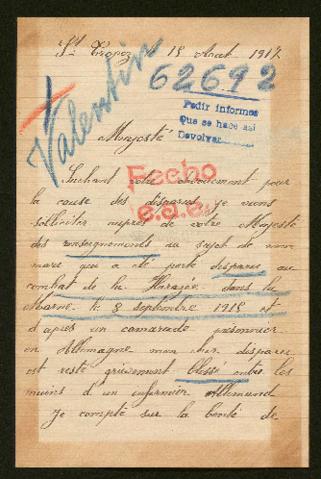 St Tropez 15 Aout 1917
Valentin
62692
Pedir informes
Que se hace asi
Devolver
Majesté
Fecho
e.a.e.
Sachant votre dévouement pour
la cause des disparus je viens
solliciter auprès de votre Majesté
des renseignements au sujet de mon
mari qui a été porté disparu au
combat de la Harazée dans la
Marne le 8 septembre 1915 et
d'après un camarade prisonnier
en Allemagne mon cher disparu
est resté grièvement blessé entre les
mains d'un infirmier Allemand
Je compte sur la bonté de